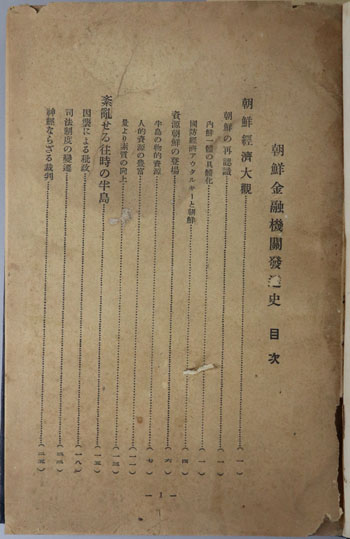 朝鮮金融機關發達史 目次
朝鮮經濟大觀……(一)
朝鮮の再認識……(一)
內鮮一體の具體化……(一)
國防經濟アウタルキーと朝鮮……(四)
資源朝鮮の登場……(六)
半島の物的資源……(七)
人的資源の豊富……(一一)
量より素質の向上……(一三)
紊亂せる往時の半島……(一五)
因襲による秕政……(一八)
司法制度の變遷……
神經ならざる裁判……
— 1 —